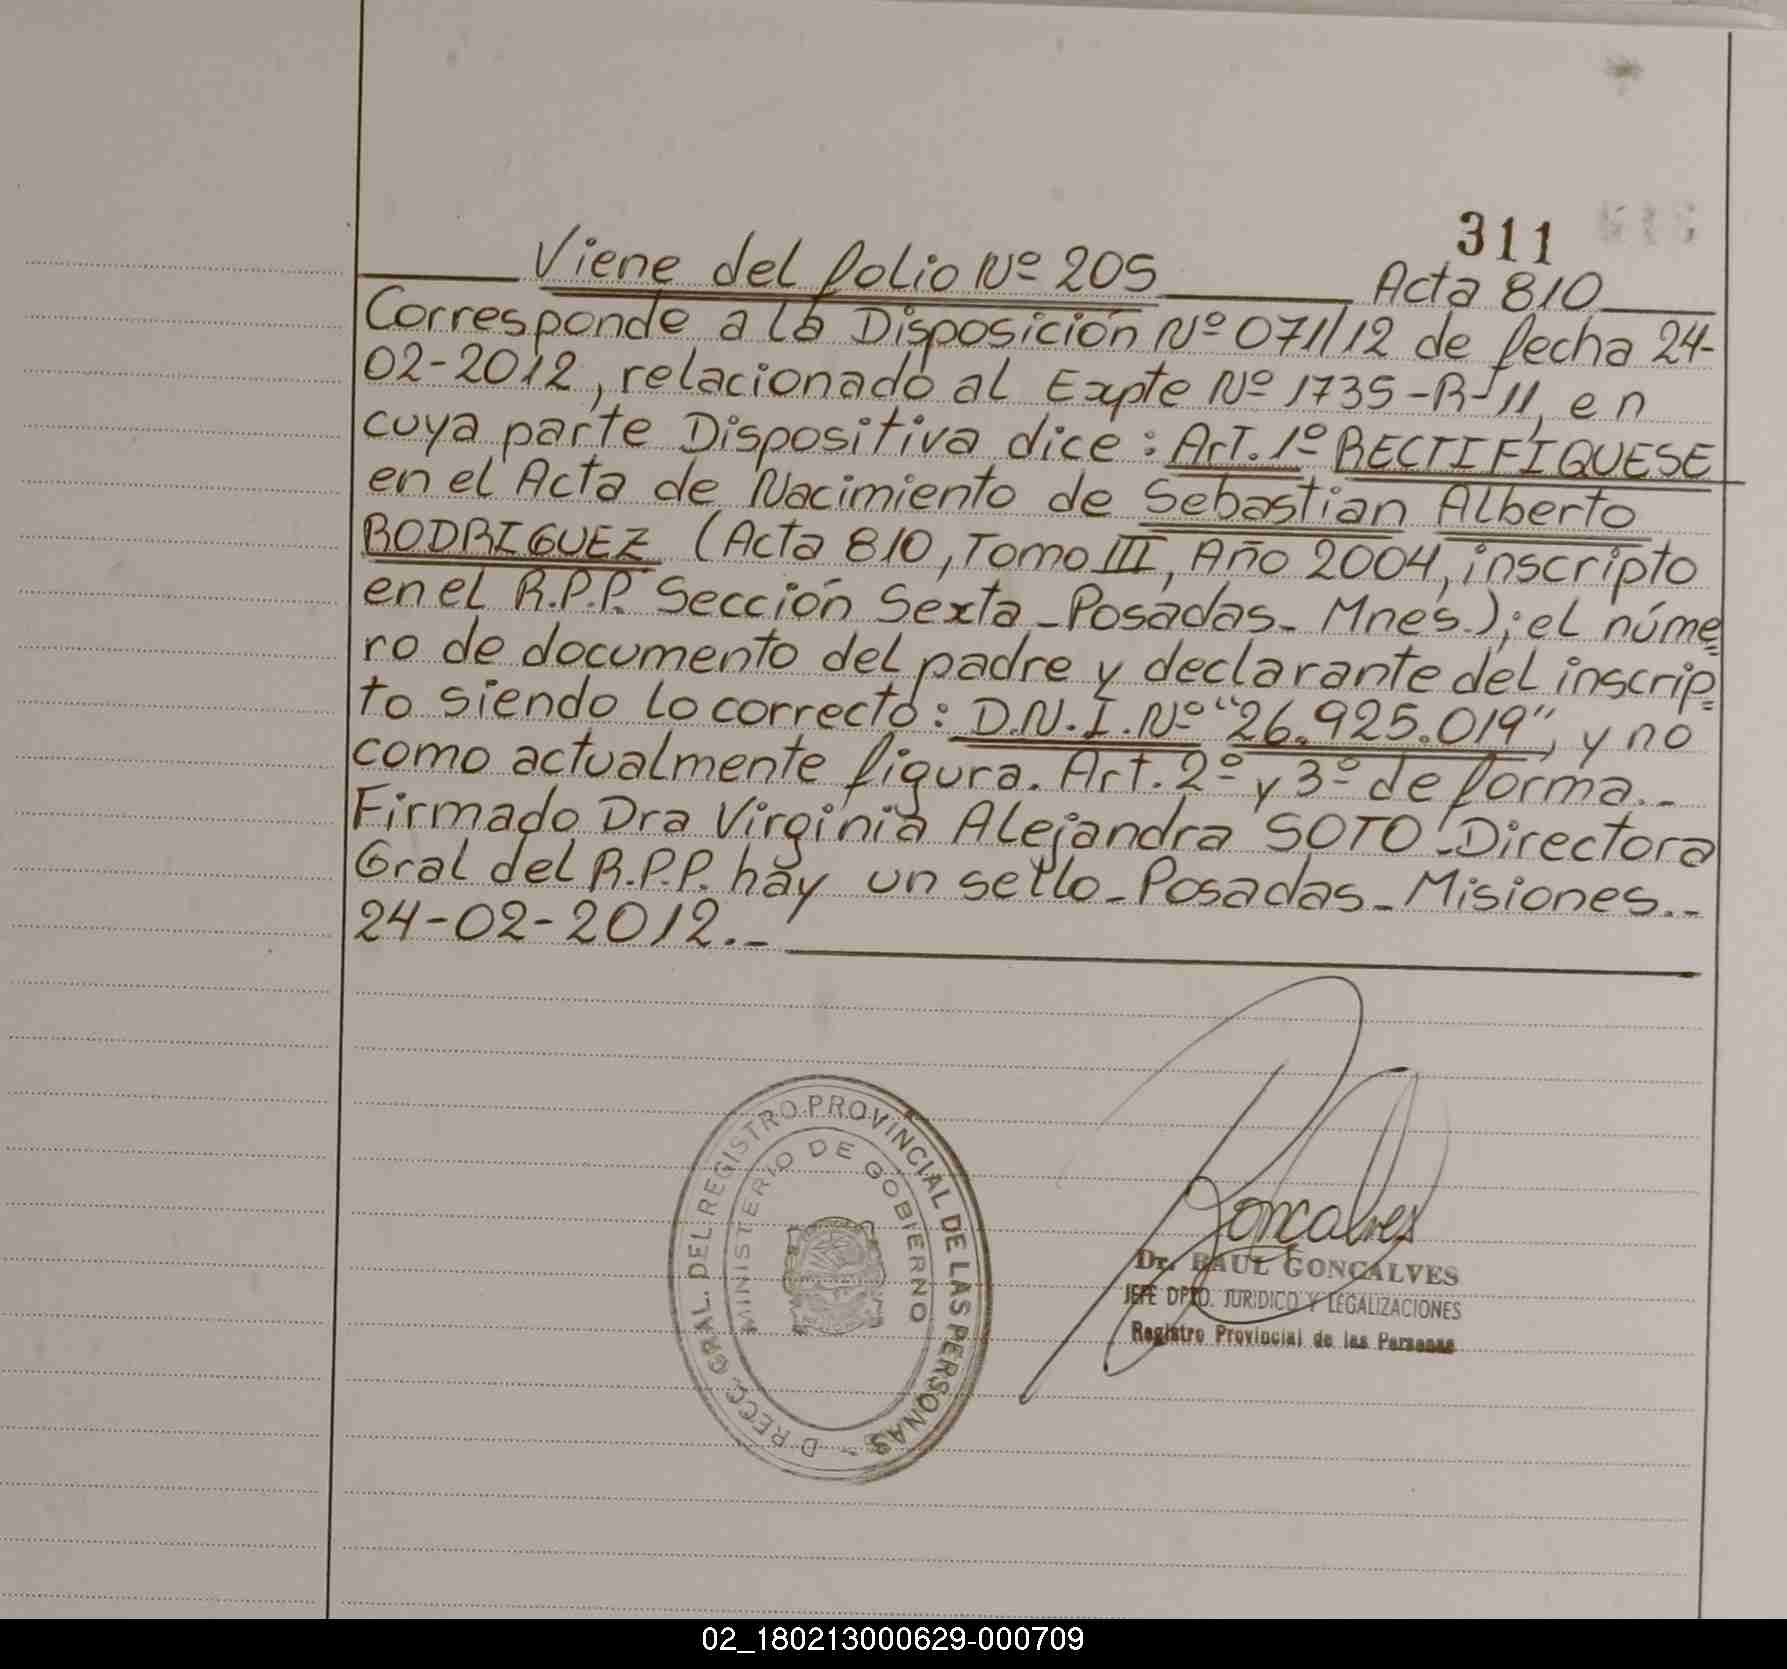 311
Viene del folio Nº 205 Acta 810
Corresponde a la Disposición Nº 071/12 de fecha 24-
02-2012, relacionado al Expte Nº 1735-R-11, en
cuya parte Dispositiva dice: Art. 1º RECTIFIQUESE
en el Acta de Nacimiento de Sebastian Alberto
RODRIGUEZ (Acta 810, Tomo III, Año 2004, inscripto
en el R.P.P. Sección Sexta - Posadas - Mnes.); el núme=
ro de documento del padre y declarante del inscrip=
to siendo lo correcto: D.N.I. Nº "26.925.019", y no
como actualmente figura. Art. 2º y 3º de forma.-
Firmado Dra Virginia Alejandra SOTO - Directora
Gral del R.P.P. hay un sello - Posadas - Misiones.-
24-02-2012.-
DIRECC. GRAL. DEL REGISTRO PROVINCIAL DE LAS PERSONAS -
MINISTERIO DE GOBIERNO
Goncalves
Dr. RAUL GONCALVES
JEFE DPTO. JURIDICO Y LEGALIZACIONES
Registro Provincial de las Personas
02_180213000629-000709